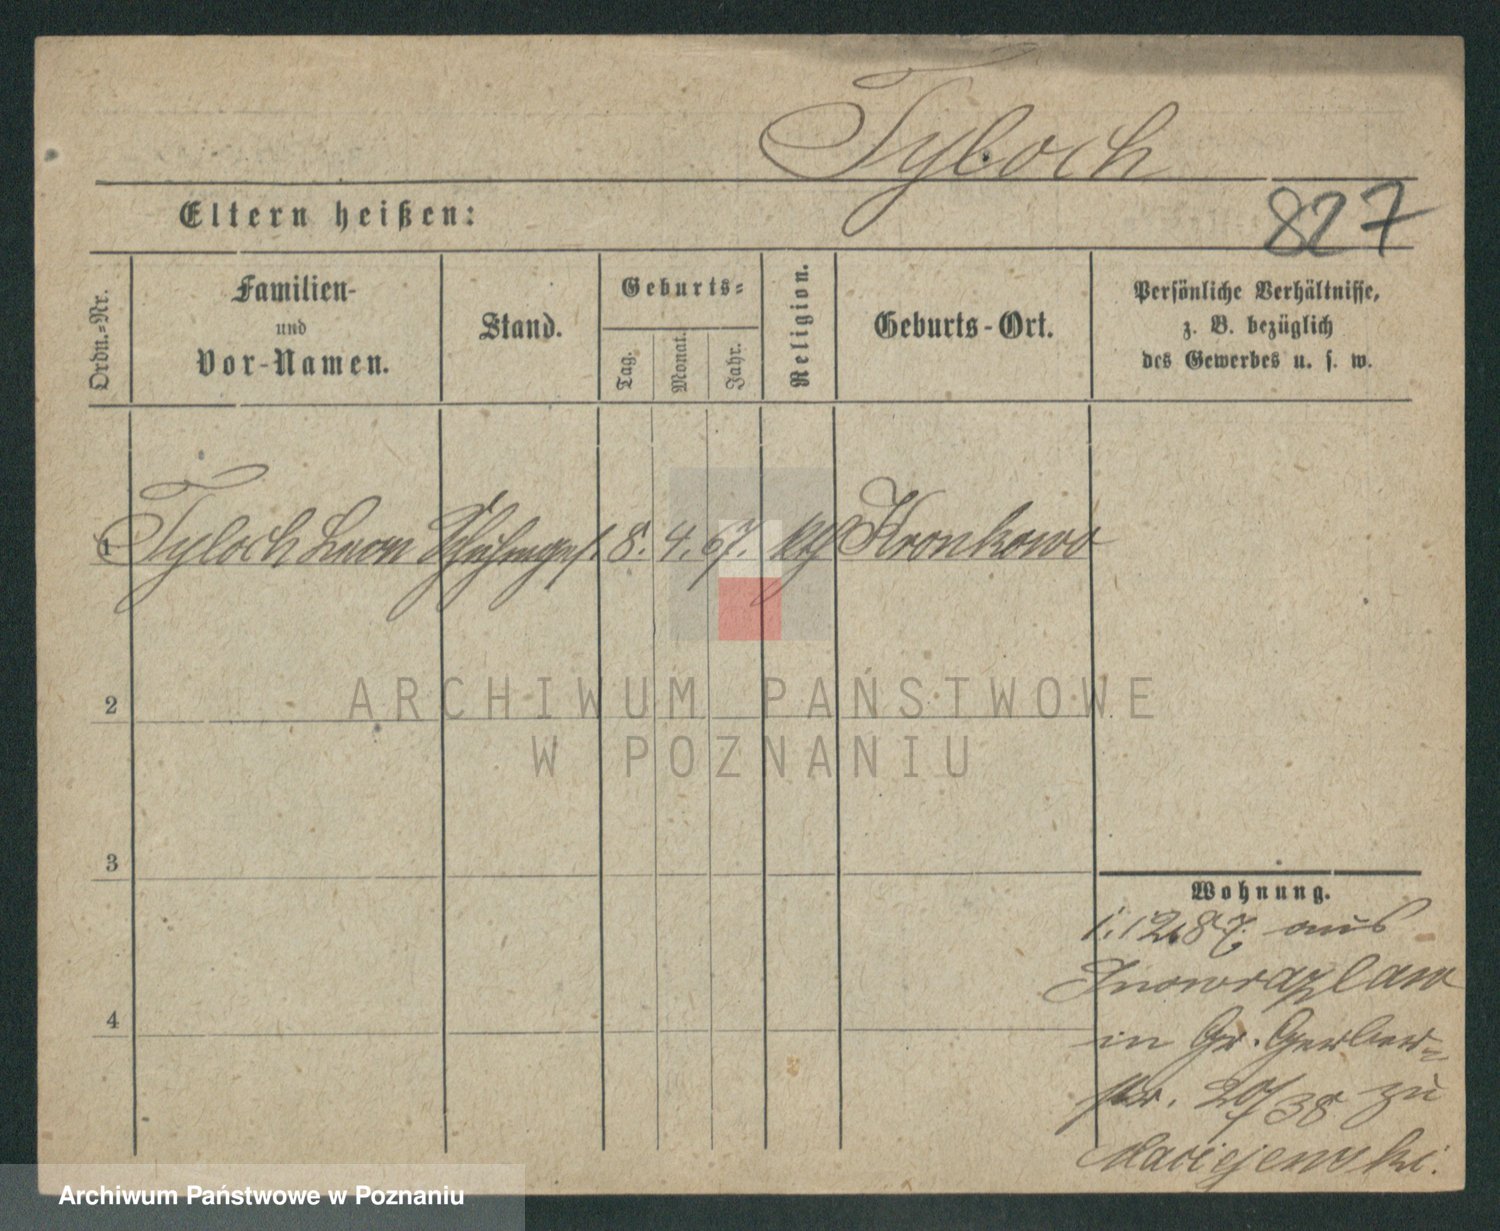 Tyloch
827
Eltern heißen:
Ordn.-Nr.
Familien-
und
Vor-Namen.
Stand.
Geburts-
Tag.
Monat.
Jahr.
Religion.
Geburts-Ort.
Persönliche Verhältnisse,
z. B. bezüglich
des Gewerbes u. s. w.
1 Tyloch Leon 8. 4. 67. kth Kronkowo
ARCHIWUM PAŃSTWOWE
2
W POZNANIU
3
Wohnung.
1.12.87. aus
Inowrazlaw
in Gr. Gerber-
4
str. 20/38 zu
Maciejewski.
Archiwum Państwowe w Poznaniu